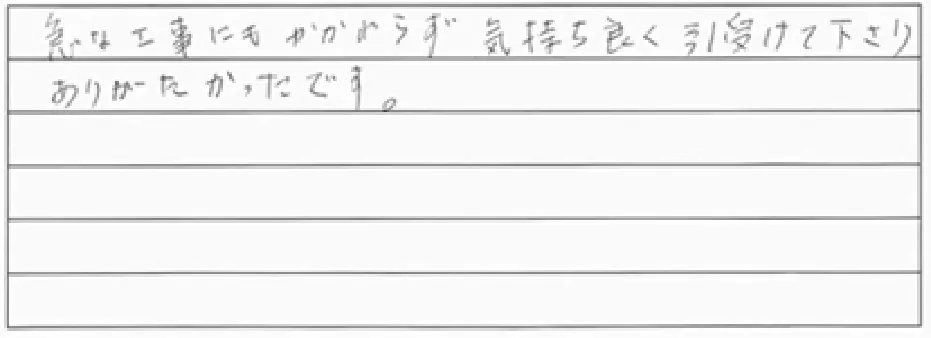 急な工事にもかかわらず 気持ち良く引受けて下さり
ありがたかったです。